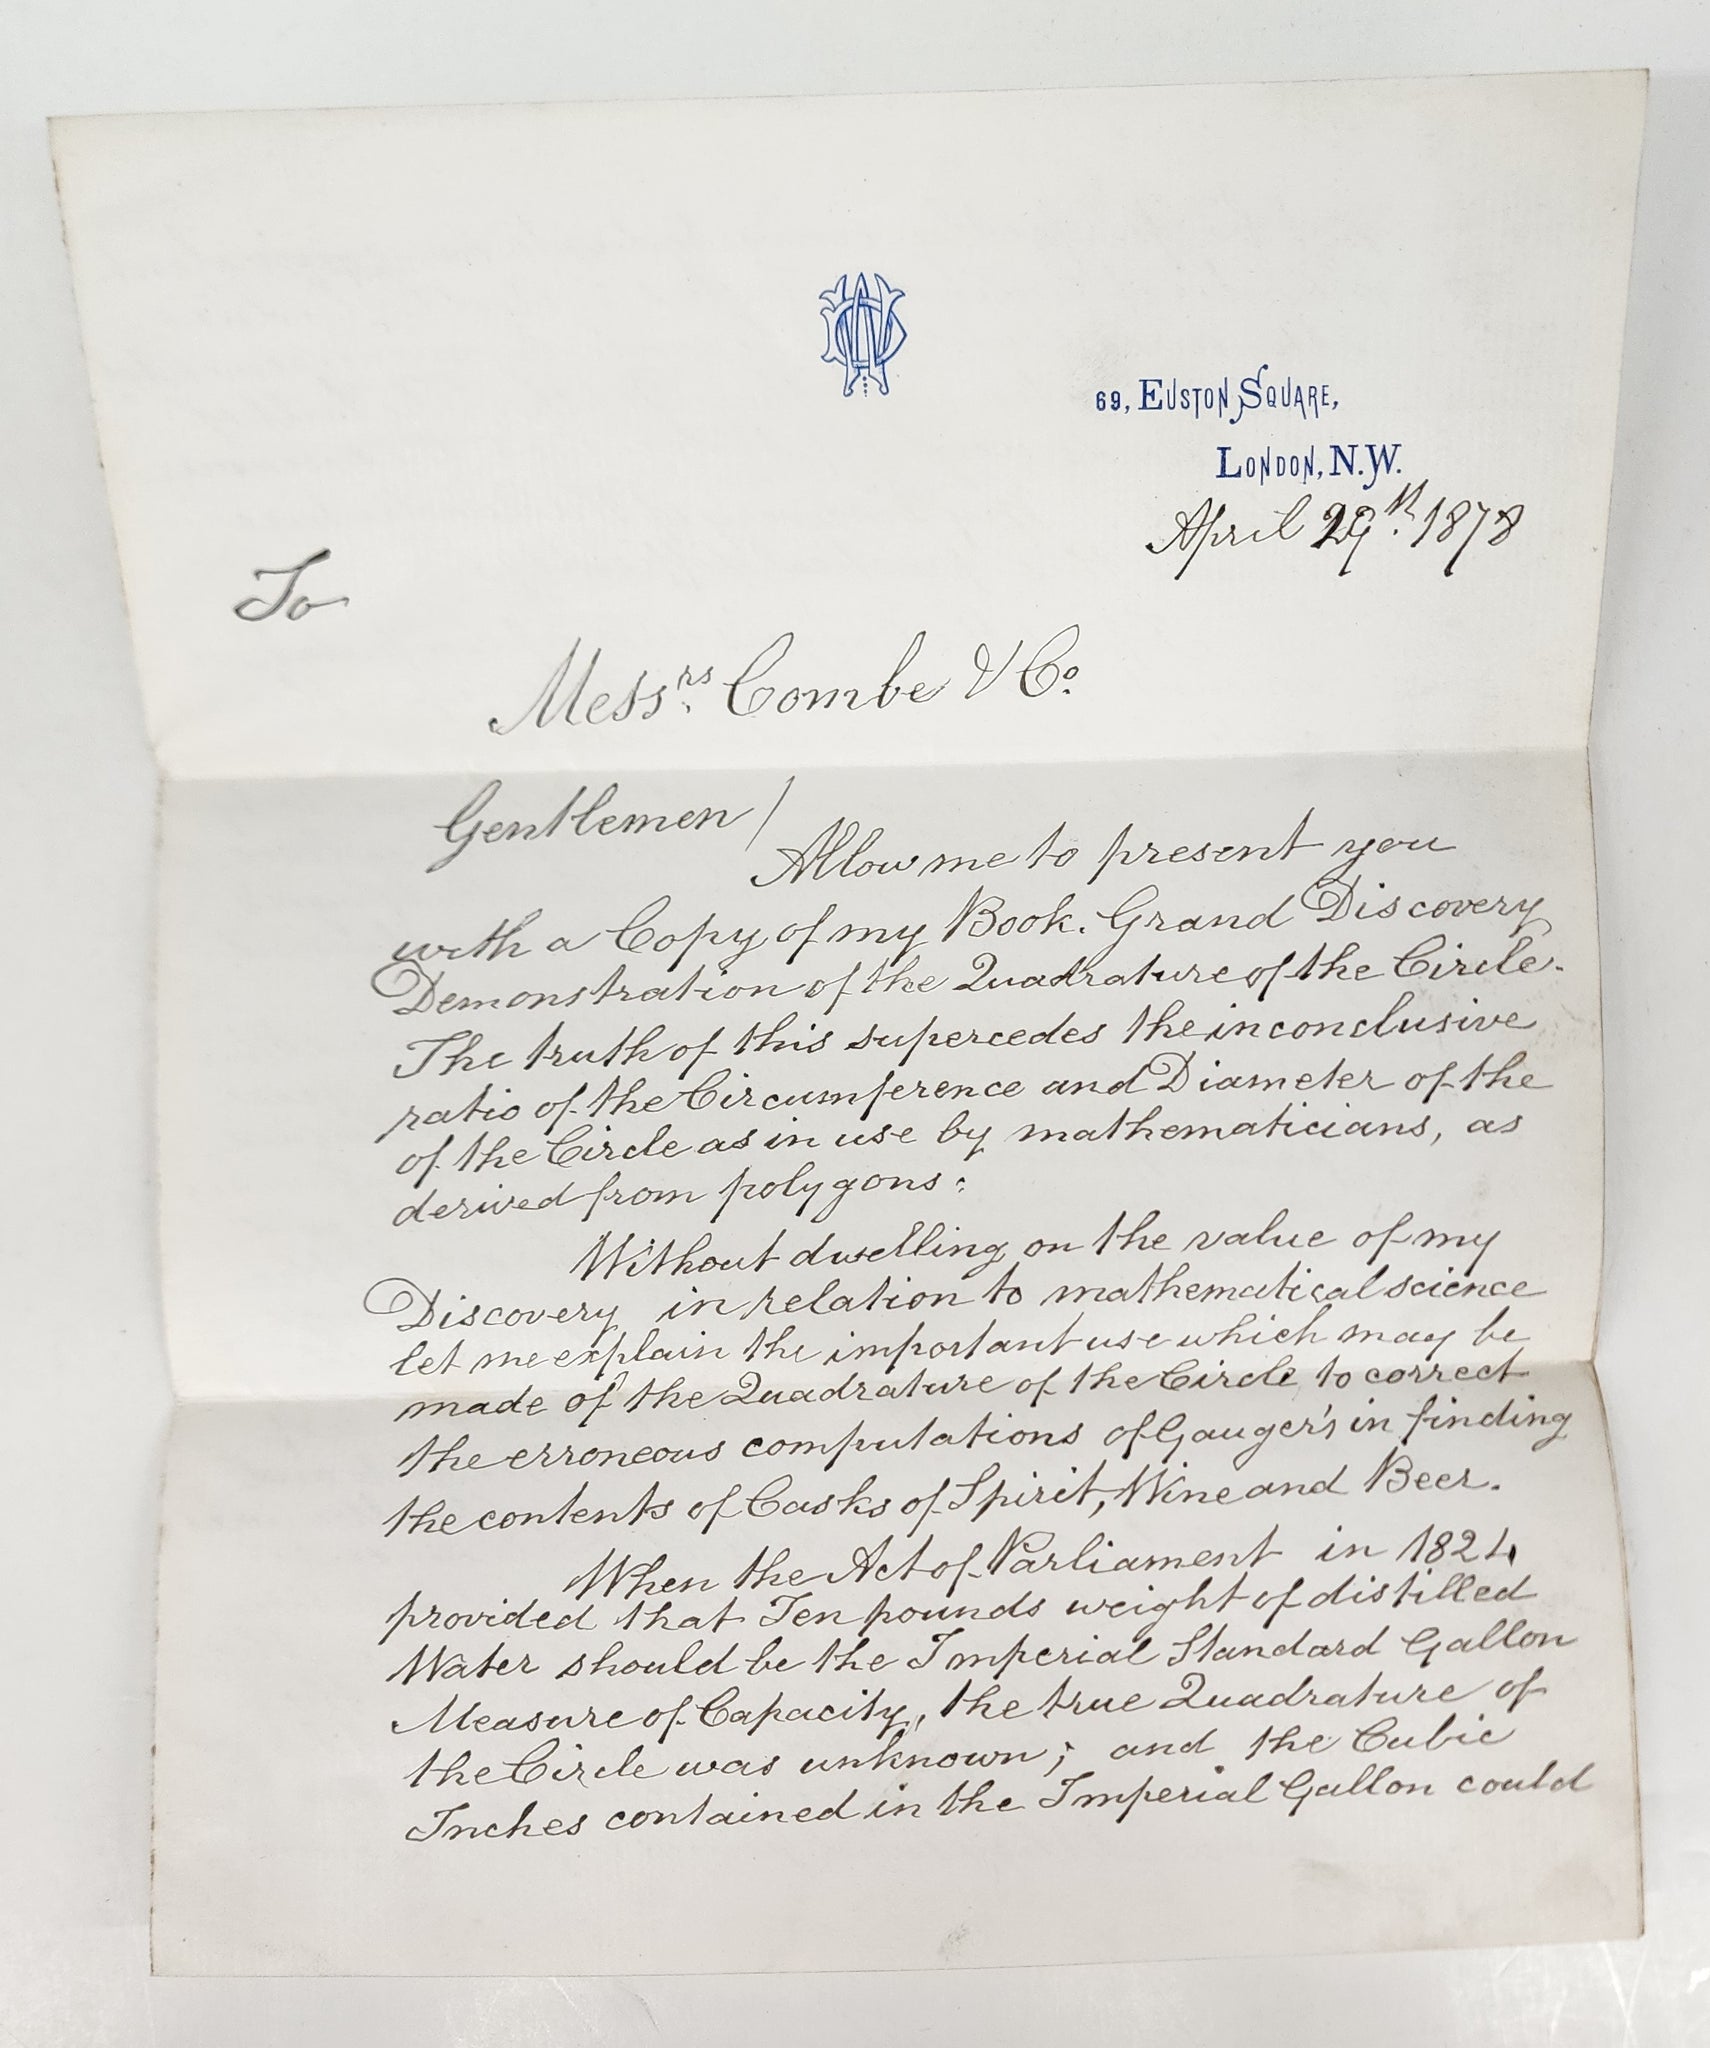 69, EUSTON SQUARE,
LONDON, N.W.
April 29th. 1878
To
Messrs. Combe & Co.
Gentlemen /
Allow me to present you
with a Copy of my Book. Grand Discovery
Demonstration of the Quadrature of the Circle.
The truth of this supercedes the inconclusive
ratio of the Circumference and Diameter of the
of the Circle as in use by mathematicians, as
derived from polygons.
Without dwelling on the value of my
Discovery in relation to mathematical science
let me explain the important use which may be
made of the Quadrature of the Circle to correct
the erroneous computations of Gauger's in finding
the contents of Casks of Spirit, Wine and Beer.
When the Act of Parliament in 1824
provided that Ten pounds weight of distilled
Water should be the Imperial Standard Gallon
Measure of Capacity, the true Quadrature of
the Circle was unknown; and the Cubic
Inches contained in the Imperial Gallon could